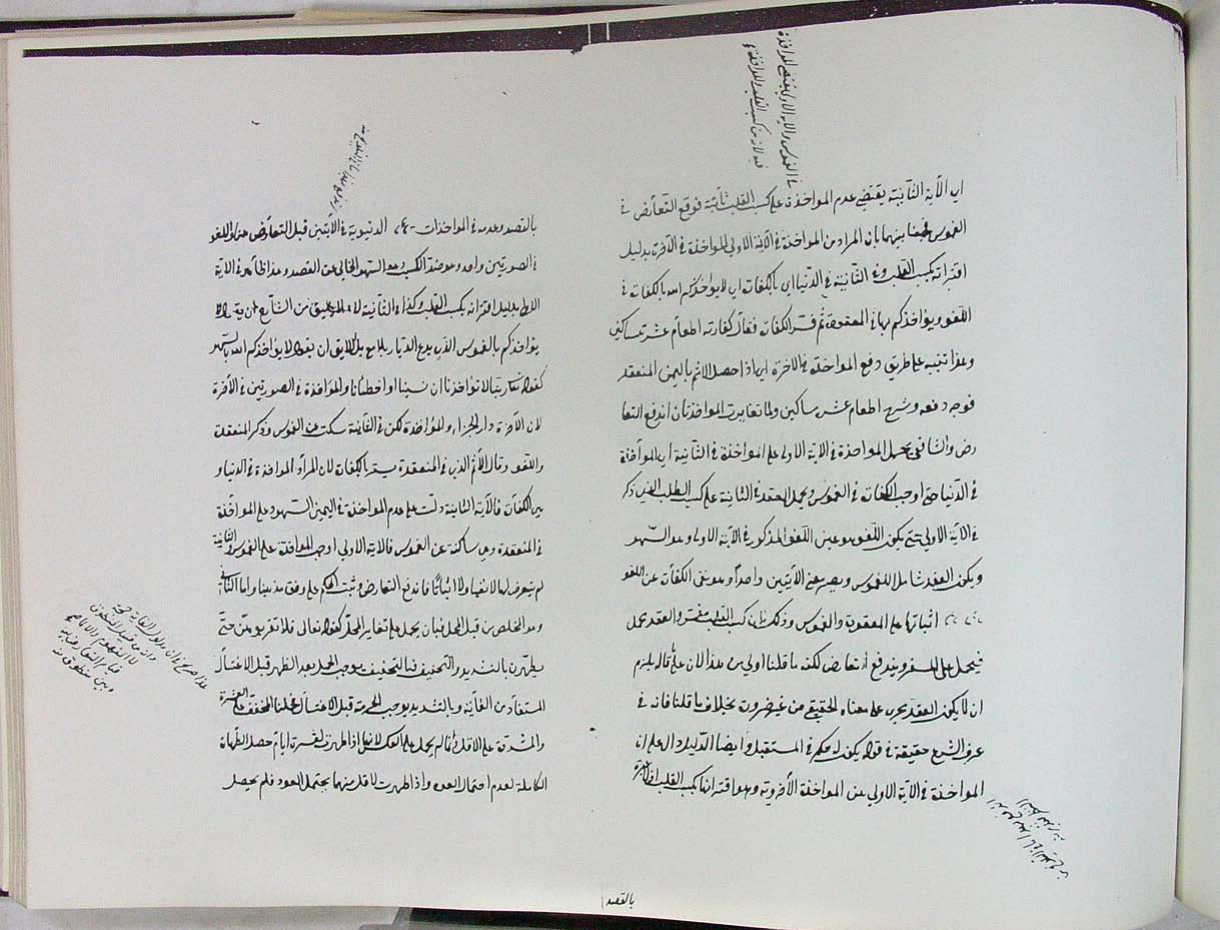 اي الآية الثانية يقتضي عدم المواخذة على كسب القلب ثابتة فوقع التعارض في
الغموس فجمعنا بينهما بان المراد من المواخذة في الآية الاولى المواخذة في الآخرة بدليل
اقترانه بكسب القلب وفي الثانية في الدنيا اي بالكفارة اي لا يواخذكم الله بالكفارة في
اللغو ويؤاخذكم بها في المعقودة ثم فسر الكفارة فقال كفارته اطعام عشرة مساكين
وهذا تنبيه على طريق دفع المواخذة في الآخرة اي اذا حصل الاثم باليمين المنعقدة
فوجه دفعه وشرح اطعام عشرة مساكين ولما تغايرت المواخذتان اندفع التعا
رض والشافعي يحمل المواخذة في الآية الاولى على المواخذة في الثانية اي المواخذة
في الدنيا حتى اوجب الكفارة في الغموس ويحمل العقد في الثانية على كسب القلب الذي ذكر
في الآية الاولى حتى يكون اللغو هو عين اللغو المذكور في الآية الاولى وهو السهو
ويكون العقد شاملا للغموس ويصير معنى الآيتين واحدا وهو نفي الكفارة عن اللغو
اثباتها على المعقودة والغموس وذلك لان كسب القلب مفسر والعقد مجمل
فيحمل على المفسر ويندفع التعارض لكنه ما قلنا اولى من هذا لان على ما قال يلزم
ان لا يكون العقد يجري على معناه الحقيقي من غير ضرورة بخلاف ما قلنا فانه في
عرف الشرع حقيقة في قول يكون له حكم في المستقبل وايضا الدليل دال على ان
المواخذة في الآية الاولى هي المواخذة الأخروية وهو اقترانها بكسب القلب
بالقصد
بالقصد وعدمه في المواخذات الدنيوية في الآيتين قبل التعارض
في الصورتين واحد وهو ضد الكسب وهو السهو الخالي عن القصد وهذا ظاهر في الآية
الاولى بدليل اقترانه بكسب القلب وكذا في الثانية لانه لا يليق من الشارع ان يقول لا
يؤاخذكم بالغموس الذي يدع الديار بلاقع بل اللايق ان يقول لا يؤاخذكم الله بالسهو
كقوله تعالى ربنا لا تؤاخذنا ان نسينا او اخطأنا والمؤاخذة في الصورتين في الآخرة
لان الآخرة دار الجزاء والمؤاخذة لكن في الثانية سكت عن الغموس وذكر المنعقدة
واللغو وقال الاثم الذي في المنعقدة يستر بالكفارة لان المراد المواخذة في الدنيا و
هي الكفارة فالآية الثانية دلت على عدم المواخذة في اليمين السهو وعلى المواخذة
في المنعقدة وهي ساكتة عن الغموس فالآية الاولى اوجب المواخذة على الغموس والثانية
لم يتعرض لها لا نفيا ولا اثباتا فاندفع التعارض وثبت الحكم على وفق مذهبنا واما الثاني
وهو المخلص من قبل المحل فبان يحمل على تغاير المحل كقوله تعالى فلا تقربوهن حتى
يطهرن بالتشديد والتخفيف فبالتخفيف يوجب الحل بعد الطهر قبل الاغتسال
المستفاد من الغاية وبالتشديد يوجب الحرمة قبل الاغتسال فحملنا المخفف على العشرة
والمشددة على الاقل وانما لم يحمل على العكس لانها اذا طهرت لعشرة ايام حصل الطهارة
الكاملة لعدم احتمال العود واذا طهرت لاقل منها يحتمل العود فلم يحصل